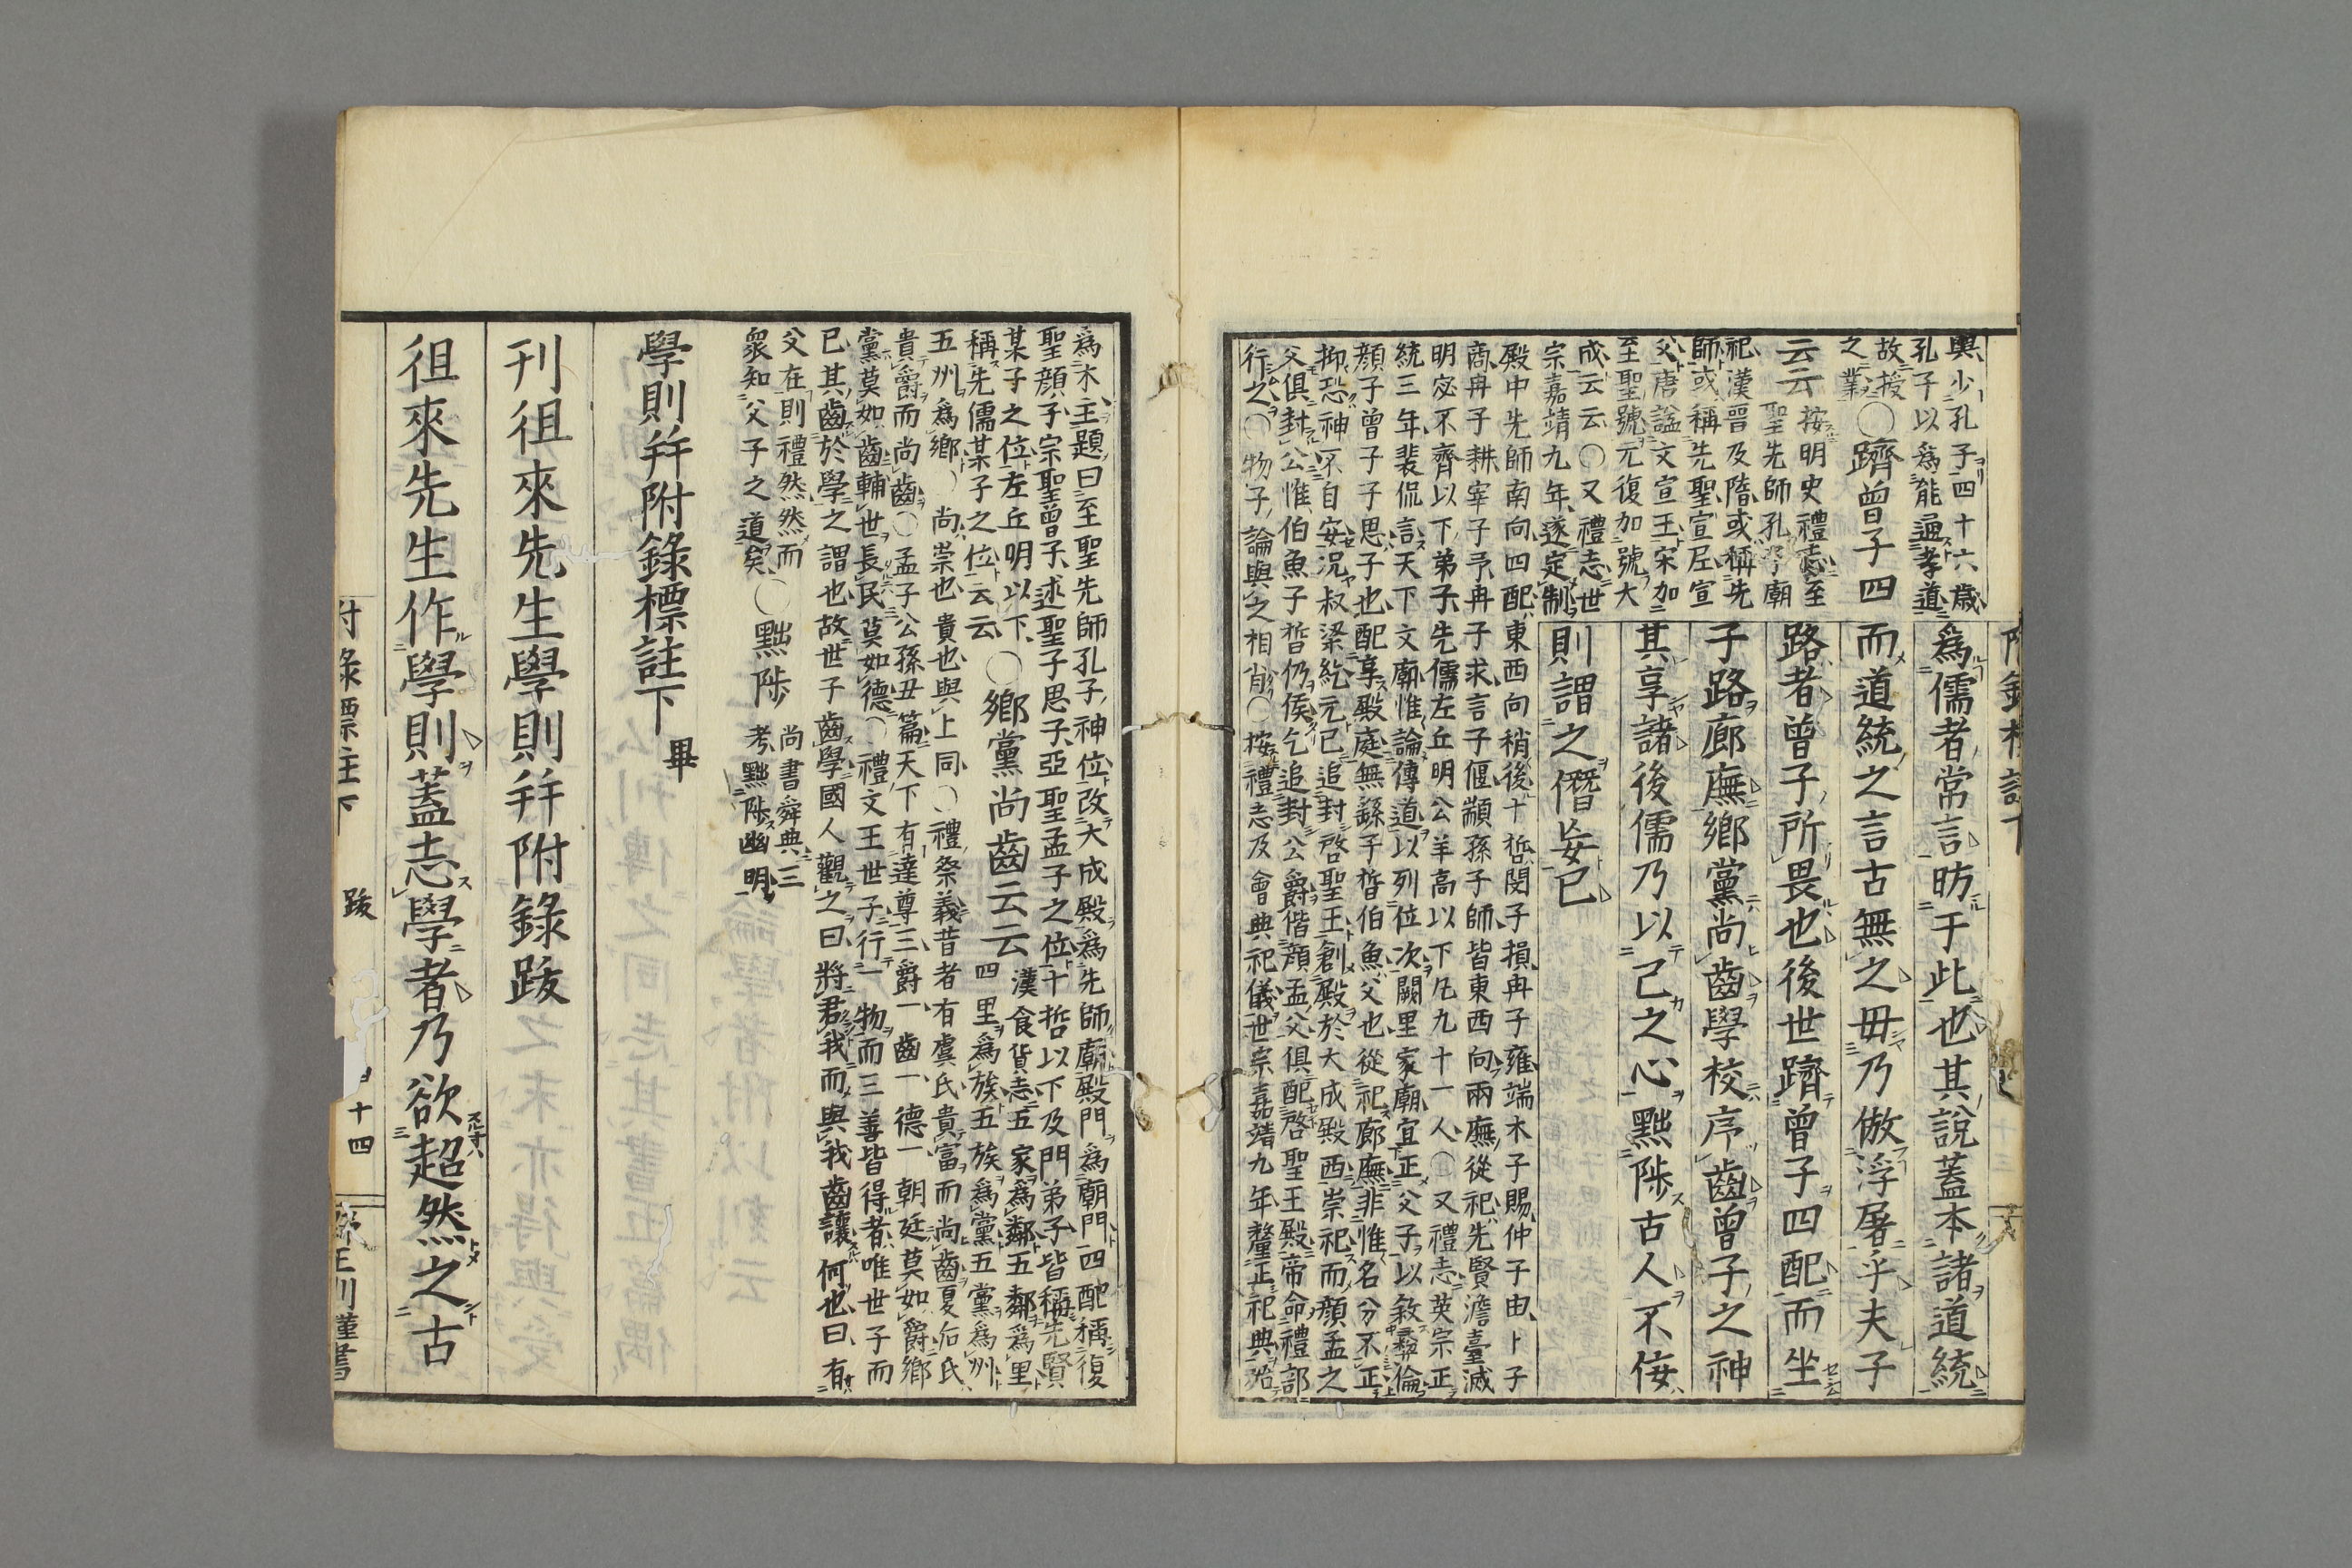 輿少孔子四十六歲
孔子以爲能通孝道
故授
之業
○躋曾子四
云云
按明史禮志至
聖先師孔子廟
祀漢晉及隋或稱先
師或稱先聖宣尼宣
父唐謚文宣王宋加
至聖號元復加號大
成云云○又禮志世
宗嘉靖九年遂定制
爲儒者常言昉于此也其說蓋本諸道統
而道統之言古無之毋乃倣浮屠乎夫子
路者曾子所畏也後世躋曾子四配而坐
子路廊廡鄉黨尚齒學校序齒曾子之神
其享諸後儒乃以己之心黜陟古人不佞
則謂之僭妄已
殿中先師南向四配東西向稍後十哲閔子損冉子雍端木子賜仲子由卜子
商冉子耕宰子予冉子求言子偃顓孫子師皆東西向兩廡從祀先賢澹臺滅
明宓不齊以下弟子先儒左丘明公羊高以下凡九十一人○又禮志英宗正
統三年裴侃言天下文廟惟論傳道以列位次闕里家廟宜正父子以敘彜倫
顔子曾子子思子也配享殿庭無繇子晳伯魚父也從祀廊廡非惟名分不正
抑恐神不自安況叔梁紇元已追封啓聖王創殿於大成殿西崇祀而顔孟之
父俱封公惟伯魚子晳仍侯乞追封公爵偕顔孟父俱配啓聖王殿帝命禮部
行之○物子論與之相肖○按禮志及會典祀儀世宗嘉靖九年釐正祀典始
爲木主題曰至聖先師孔子神位改大成殿爲先師廟殿門爲廟門四配稱復
聖顔子宗聖曾子述聖子思子亞聖孟子之位十哲以下及門弟子皆稱先賢
某子之位左丘明以下
稱先儒某子之位云云
○鄉黨尚齒云云
漢食貨志五家爲鄰五鄰爲里
四里爲族五族爲黨五黨爲州
五州爲鄉○尚崇也貴也與上同○禮祭義昔者有虞氏貴富而尚齒夏后氏
貴爵而尚齒○孟子公孫丑篇天下有達尊三爵一齒一德一朝廷莫如爵鄉
黨莫如齒輔世長民莫如德○禮文王世子行一物而三善皆得者唯世子而
已其齒於學之謂也故世子齒學國人觀之曰將君我而與我齒讓何也曰有
父在則禮然然而
衆知父子之道矣
○黜陟
尚書舜典三
考黜陟幽明
學則幷附錄標註下畢
刊徂來先生學則幷附錄跋
徂來先生作學則蓋志學者乃欲超然之古
附錄標註下
跋
十四